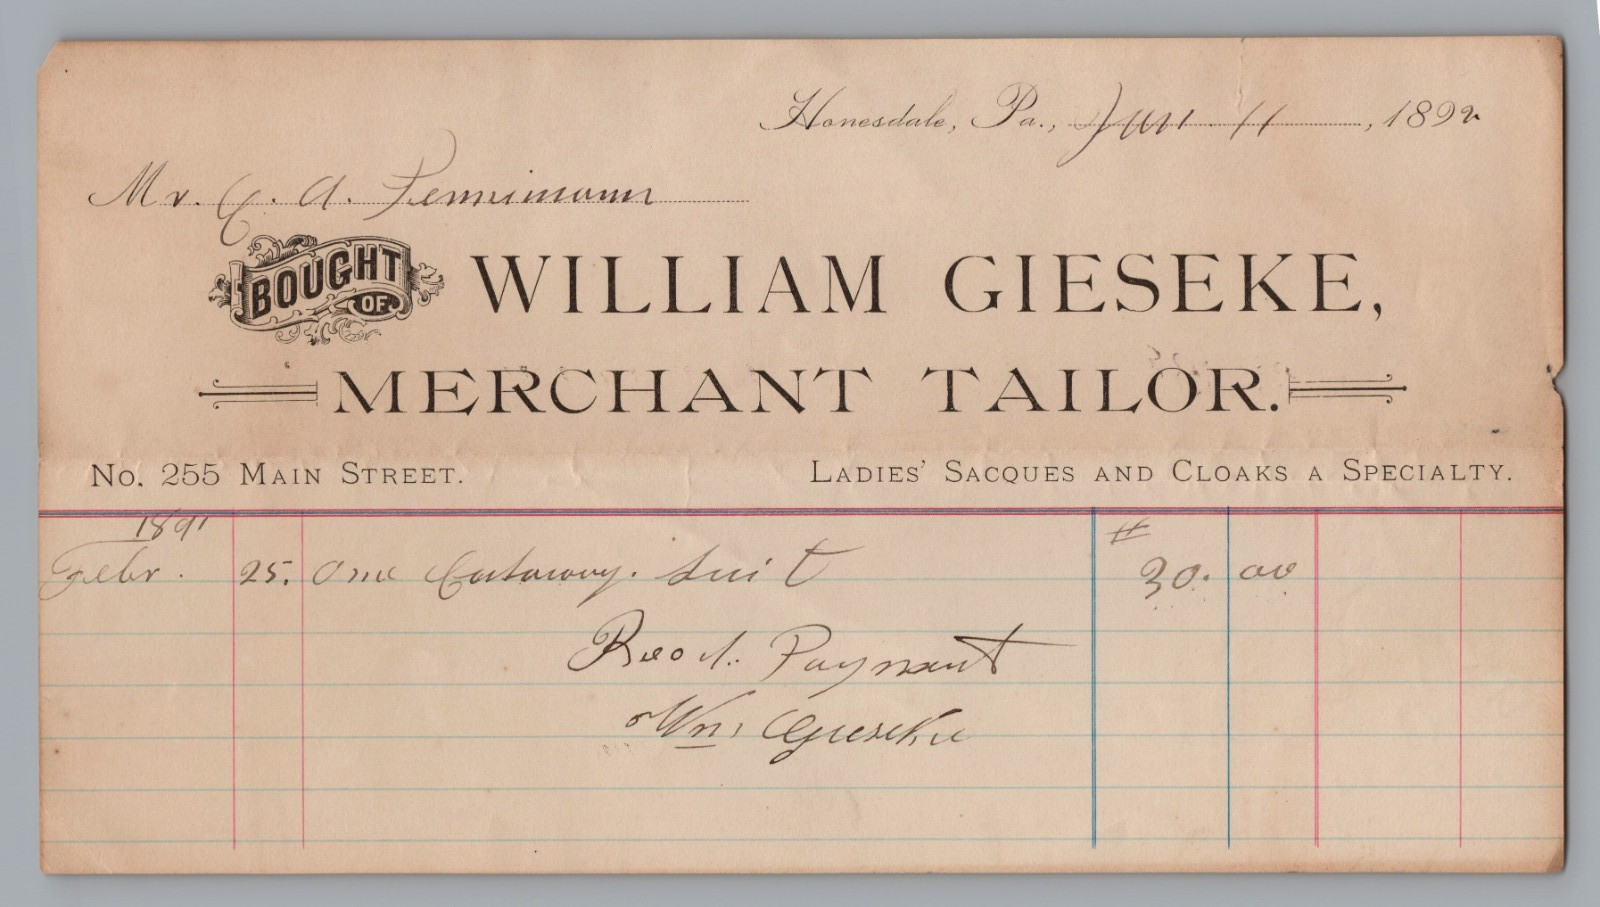 Honesdale, Pa., Jan. 11, 1892
Mr. C. A. Pennimann
BOUGHT OF WILLIAM GIESEKE,
MERCHANT TAILOR.
No. 255 Main Street. Ladies' Sacques and Cloaks a Specialty.
1891 #
Febr. 25. One Cutaway. Suit 30. 00
Recd. Payment
Wm, Gieseke